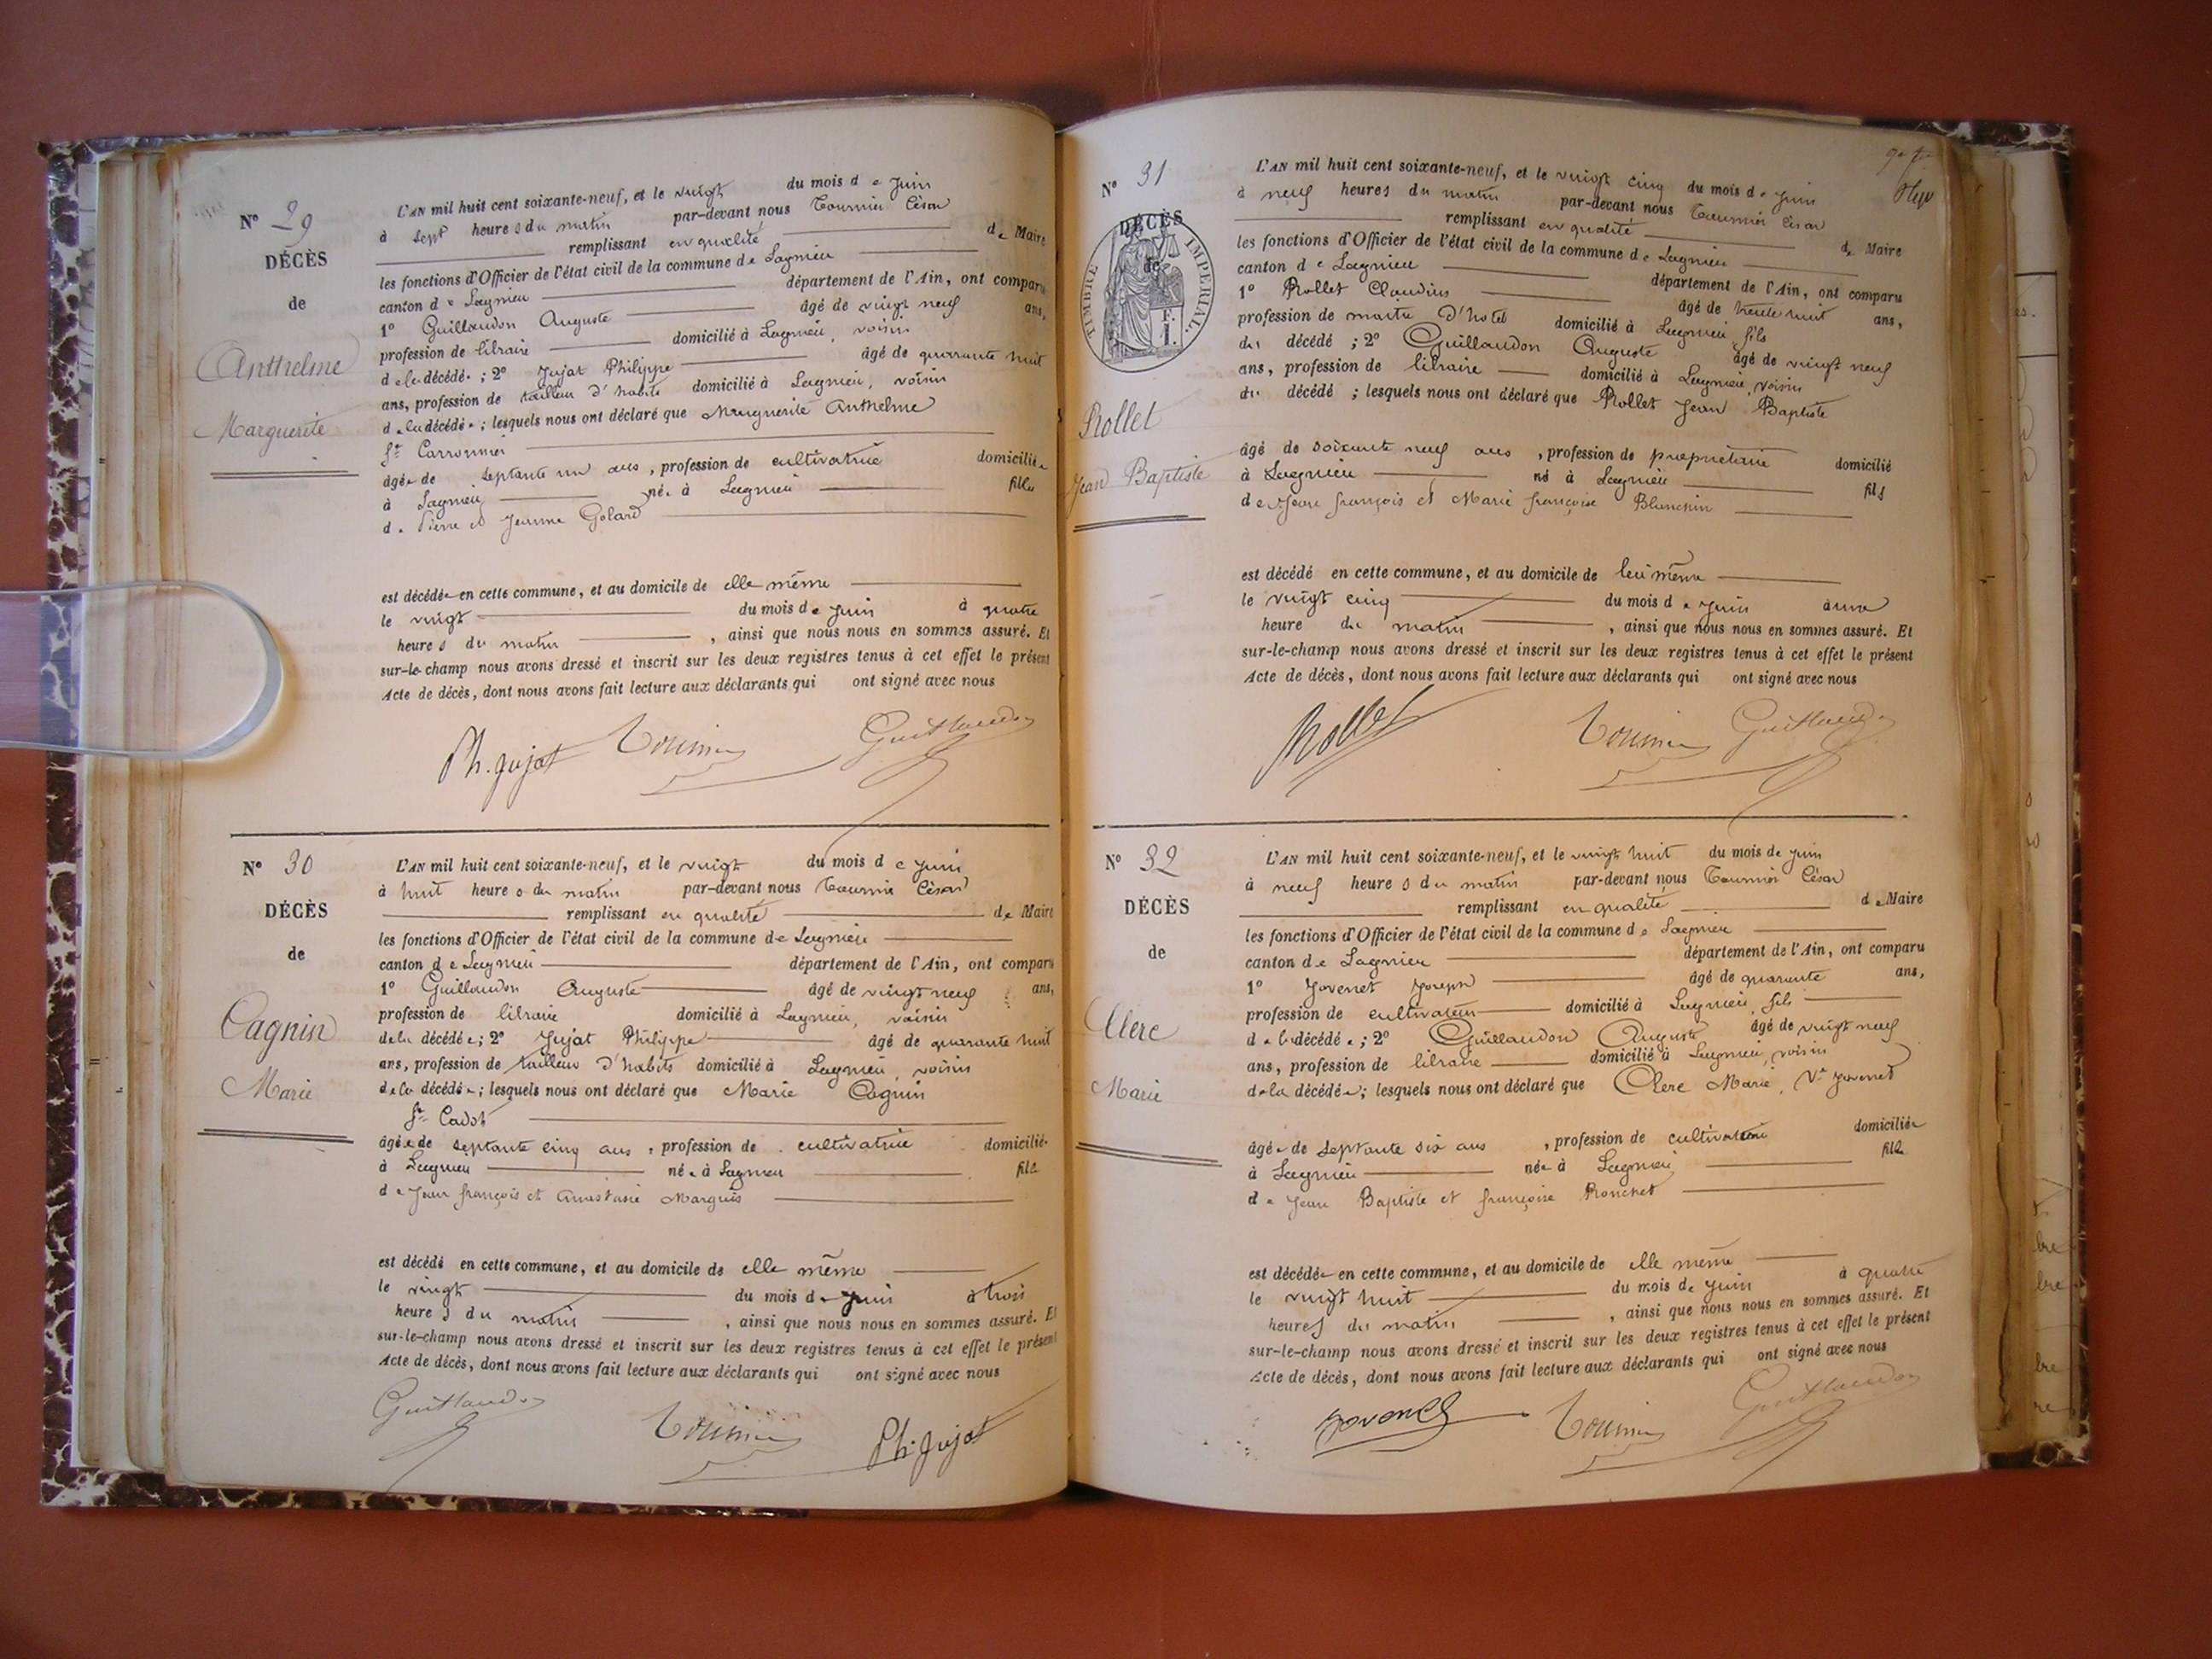 N° 29
DÉCÈS
de
Anthelme
Marguerite
L'AN mil huit cent soixante-neuf, et le vingt du mois de Juin
à sept heures du matin par-devant nous Tournier César
remplissant en qualité de Maire
les fonctions d'Officier de l'état civil de la commune de Lagnieu
canton de Lagnieu département de l'Ain, ont comparu
1° Guillaudon Auguste âgé de vingt neuf ans,
profession de libraire domicilié à Lagnieu, voisin
de la décédée ; 2° Jujat Philippe âgé de quarante huit
ans, profession de tailleur d'habits domicilié à Lagnieu, voisin
de la décédée ; lesquels nous ont déclaré que Marguerite Anthelme
fe Carronnier
âgée de septante un ans, profession de cultivatrice domiciliée
à Lagnieu née à Lagnieu fille
de Pierre et Jeanne Golard
est décédée en cette commune, et au domicile de elle même
le vingt du mois de Juin à quatre
heures du matin, ainsi que nous nous en sommes assuré. Et
sur-le-champ nous avons dressé et inscrit sur les deux registres tenus à cet effet le présent
Acte de décès, dont nous avons fait lecture aux déclarants qui ont signé avec nous
Ph. Jujat Tournier Guillaudon
N° 30
DÉCÈS
de
Cagnin
Marie
L'AN mil huit cent soixante-neuf, et le vingt du mois de Juin
à huit heures du matin par-devant nous Tournier César
remplissant en qualité de Maire
les fonctions d'Officier de l'état civil de la commune de Lagnieu
canton de Lagnieu département de l'Ain, ont comparu
1° Guillaudon Auguste âgé de vingt neuf ans,
profession de libraire domicilié à Lagnieu, voisin
de la décédée ; 2° Jujat Philippe âgé de quarante huit
ans, profession de tailleur d'habits domicilié à Lagnieu, voisin
de la décédée ; lesquels nous ont déclaré que Marie Cagnin
fe Cadot
âgée de septante cinq ans, profession de cultivatrice domiciliée
à Lagnieu née à Lagnieu fille
de Jean françois et Anastasie Marquis
est décédé en cette commune, et au domicile de elle même
le vingt du mois de Juin à trois
heures du matin, ainsi que nous nous en sommes assuré. Et
sur-le-champ nous avons dressé et inscrit sur les deux registres tenus à cet effet le présent
Acte de décès, dont nous avons fait lecture aux déclarants qui ont signé avec nous
Guillaudon Tournier Ph. Jujat
N° 31
DÉCÈS
de
TIMBRE IMPÉRIAL.
F.
1.
Rollet
Jean Baptiste
L'AN mil huit cent soixante-neuf, et le vingt cinq du mois de Juin
à neuf heures du matin par-devant nous Tournier César
remplissant en qualité de Maire
les fonctions d'Officier de l'état civil de la commune de Lagnieu
canton de Lagnieu département de l'Ain, ont comparu
1° Rollet Claudius âgé de trente huit ans,
profession de maitre d'hotel domicilié à Lagnieu fils
du décédé ; 2° Guillaudon Auguste âgé de vingt neuf
ans, profession de libraire domicilié à Lagnieu, voisin
du décédé ; lesquels nous ont déclaré que Rollet Jean Baptiste
âgé de soixante neuf ans, profession de propriétaire domicilié
à Lagnieu né à Lagnieu fils
de Jean françois et Marie françoise Blanchin
est décédé en cette commune, et au domicile de lui même
le vingt cinq du mois de Juin à une
heure du matin, ainsi que nous nous en sommes assuré. Et
sur-le-champ nous avons dressé et inscrit sur les deux registres tenus à cet effet le présent
Acte de décès, dont nous avons fait lecture aux déclarants qui ont signé avec nous
Rollet Tournier Guillaudon
N° 32
DÉCÈS
de
Clerc
Marie
L'AN mil huit cent soixante-neuf, et le vingt huit du mois de Juin
à neuf heures du matin par-devant nous Tournier César
remplissant en qualité de Maire
les fonctions d'Officier de l'état civil de la commune de Lagnieu
canton de Lagnieu département de l'Ain, ont comparu
1° Jovenet Joseph âgé de quarante ans,
profession de cultivateur domicilié à Lagnieu, fils
de la décédée ; 2° Guillaudon Auguste âgé de vingt neuf
ans, profession de libraire domicilié à Lagnieu, voisin
de la décédée ; lesquels nous ont déclaré que Clerc Marie, Ve Jovenet
âgée de septante six ans, profession de cultivatrice domiciliée
à Lagnieu née à Lagnieu fille
de Jean Baptiste et françoise Ronchet
est décédée en cette commune, et au domicile de elle même
le vingt huit du mois de Juin à quatre
heures du matin, ainsi que nous nous en sommes assuré. Et
sur-le-champ nous avons dressé et inscrit sur les deux registres tenus à cet effet le présent
Acte de décès, dont nous avons fait lecture aux déclarants qui ont signé avec nous
Jovenet Tournier Guillaudon